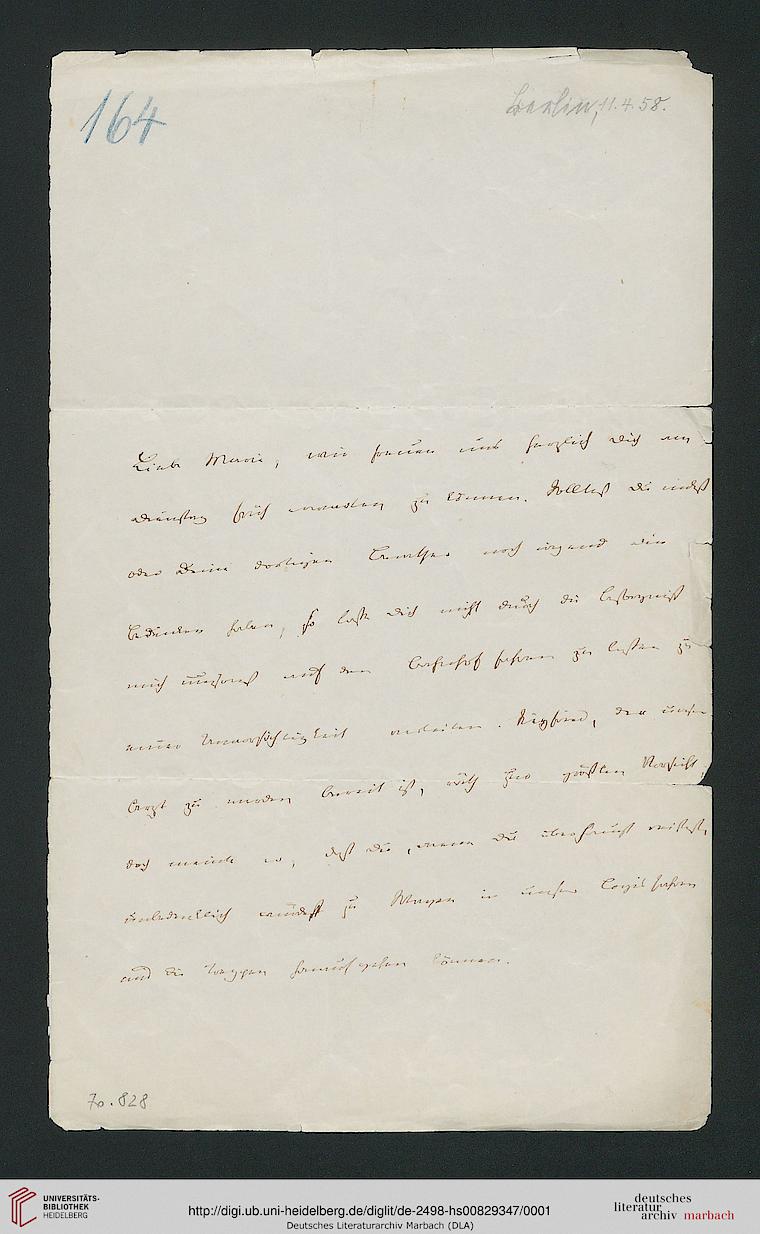 164
Berlin, 11.4.58.
Liebe Marie, wir freuen uns herzlich Dich am
Dienstag früh erwarten zu können. Solltest Du indeß
oder Deine dortigen Berather noch irgend ein
Bedenken haben, so lasse Dich nicht durch die Besorgniß
mich umsonst auf den Bahnhof fahren zu lassen zu
einer Unvorsichtigkeit verleiten. Siegfried, der unser
Arzt zu werden bereit ist, räth zur größten Vorsicht,
doch meinte er, daß Du, wenn Du überhaupt reisest,
unbedenklich würdest zu Wagen in unser Logis fahren
und die Treppen heraufgehen können.
70.828
UNIVERSITÄTS-
BIBLIOTHEK
HEIDELBERG
http://digi.ub.uni-heidelberg.de/diglit/de-2498-hs00829347/0001
Deutsches Literaturarchiv Marbach (DLA)
deutsches
literatur
archiv marbach